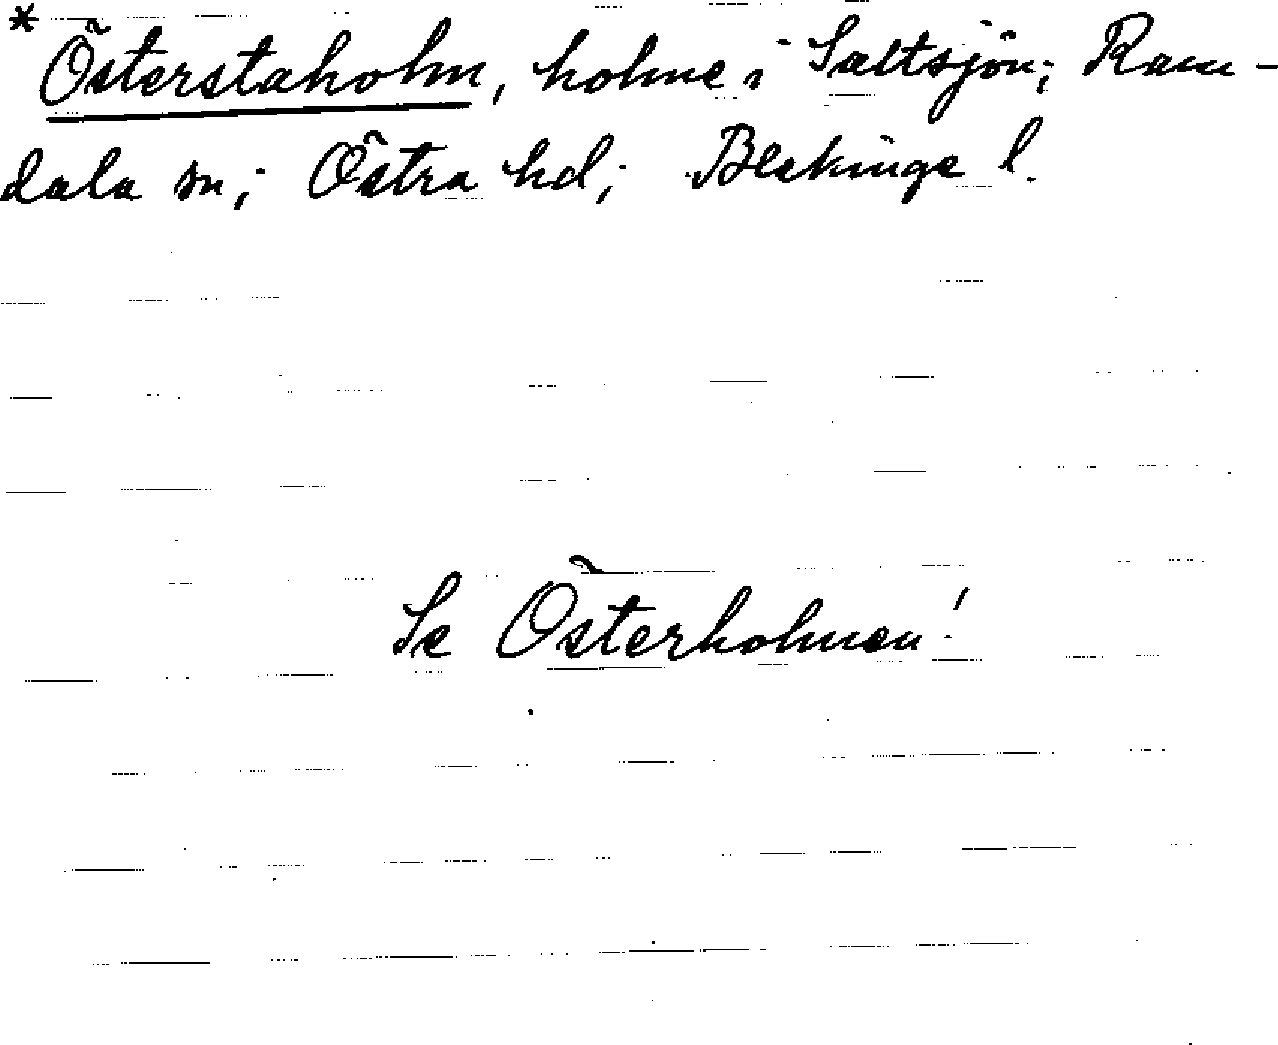 * Österstaholm, holme i Saltsjön; Ram-
dala sn; Östra hd; Blekinge l.
Se Österholmen!